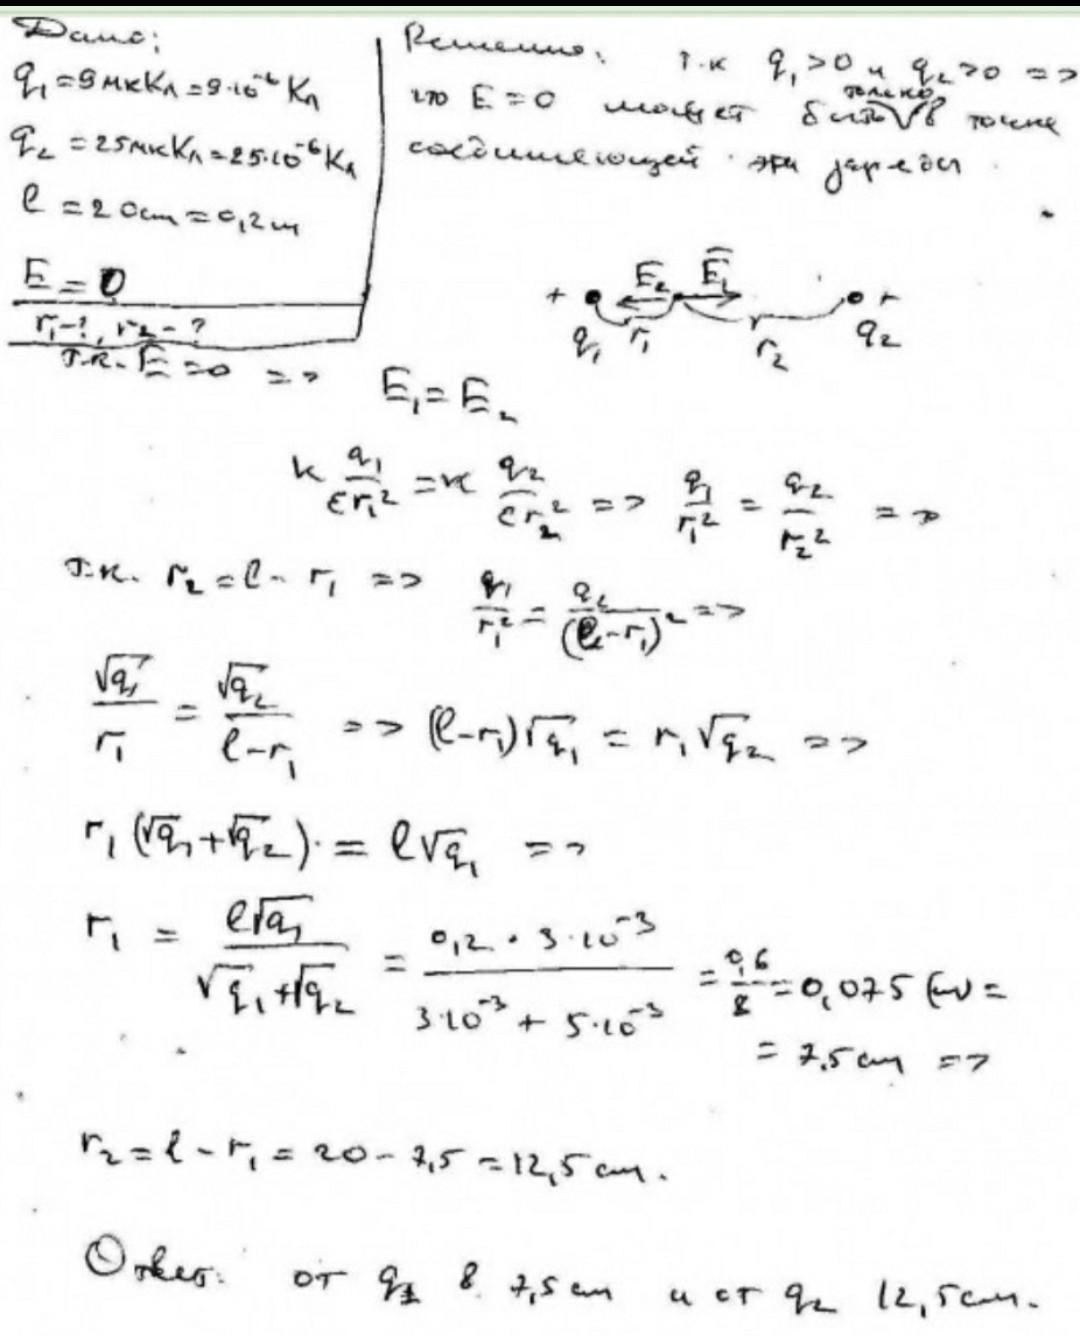 Дано:
q₁ = 9 мкКл = 9·10⁻⁶ Кл
q₂ = 25 мкКл = 25·10⁻⁶ Кл
l = 20 см = 0,2 м
E = 0
r₁ - ?, r₂ - ?
Решение: т.к q₁ > 0 и q₂ > 0 =>
что E = 0 может быть только в точке
соединяющей эти заряды.
+ E₂ E₁ +
q₁ r₁ r₂ q₂
т.к. E = 0 => E₁ = E₂
k q₁/(εr₁²) = k q₂/(εr₂²) => q₁/r₁² = q₂/r₂² =>
т.к. r₂ = l - r₁ => q₁/r₁² = q₂/(l - r₁)² =>
√q₁/r₁ = √q₂/(l - r₁) => (l - r₁)√q₁ = r₁√q₂ =>
r₁(√q₁ + √q₂) = l√q₁ =>
r₁ = l√q₁/(√q₁ + √q₂) = 0,2 · 3·10⁻³/(3·10⁻³ + 5·10⁻³) = 0,6/8 = 0,075 (м) =
= 7,5 см =>
r₂ = l - r₁ = 20 - 7,5 = 12,5 см.
Ответ: от q₁ в 7,5 см и от q₂ 12,5 см.